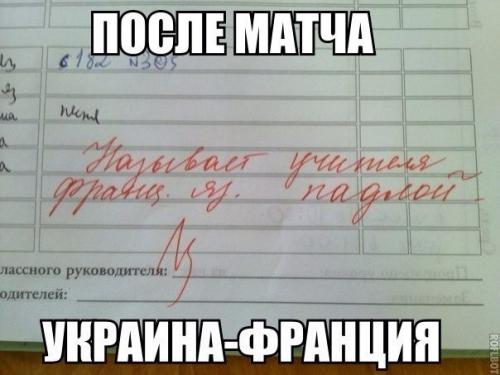 ПОСЛЕ МАТЧА
с 182 №305
яз
пение
Называет учителя
франц. яз. падлой.
лассного руководителя:
одителей:
УКРАИНА-ФРАНЦИЯ